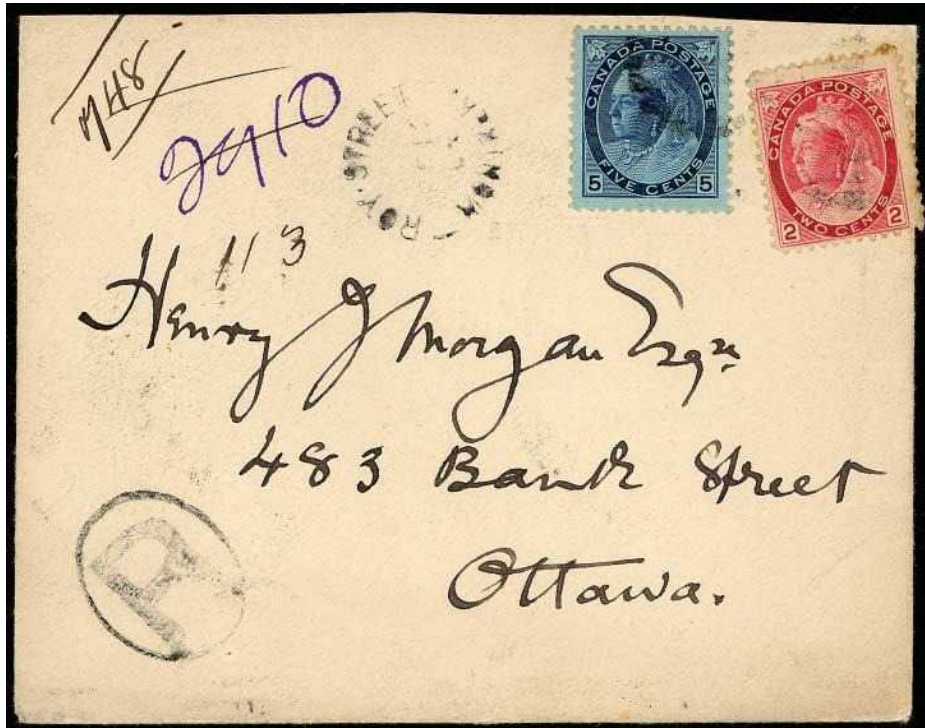 748
2910
ROY STREET
CANADA POSTAGE
5 FIVE CENTS 5
CANADA POSTAGE
2 TWO CENTS 2
113
Henry J Morgan Esqre
483 Bank Street
Ottawa.
R